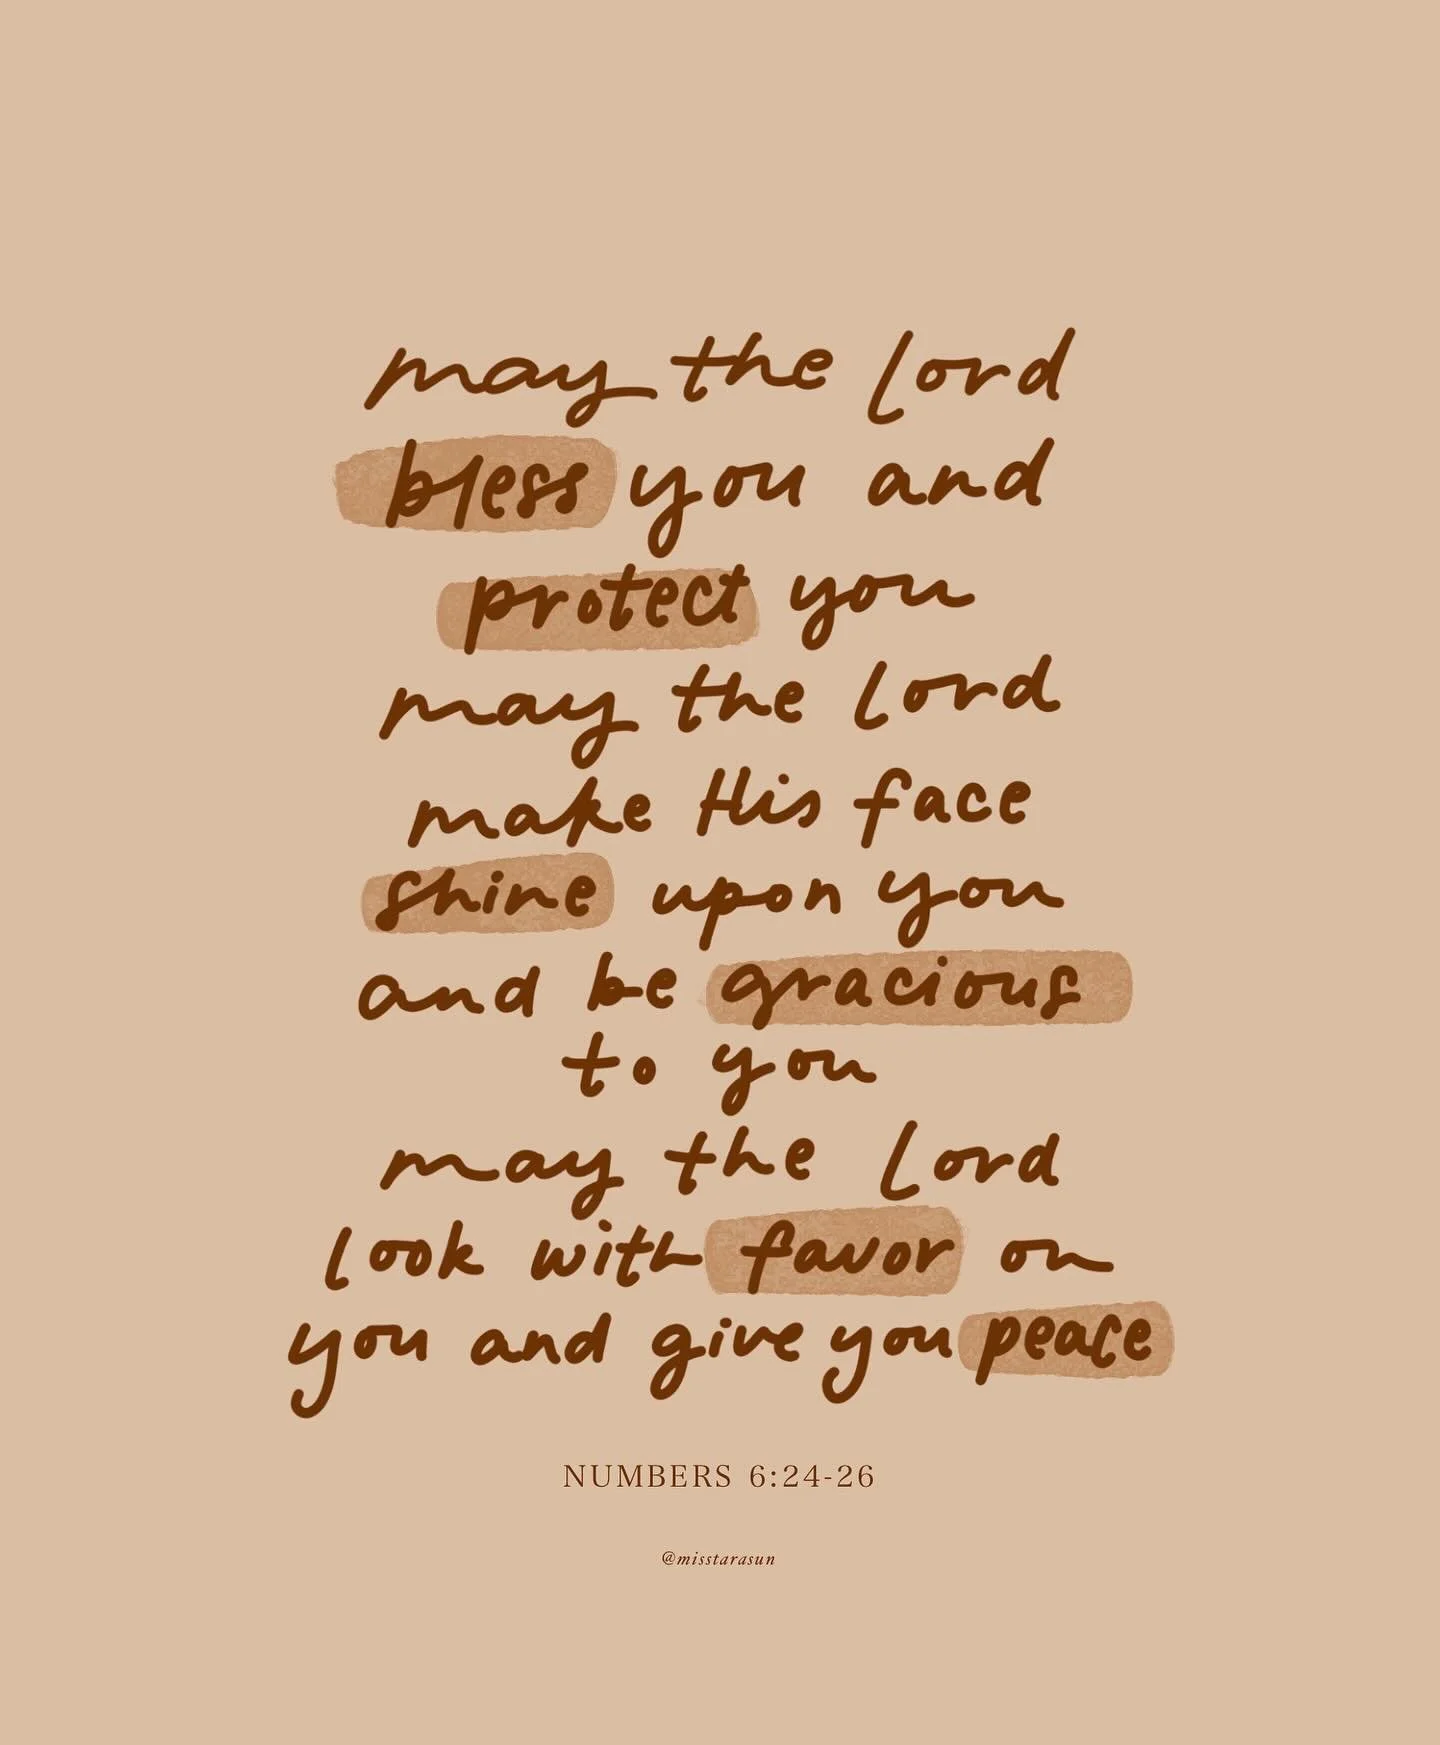 may the Lord
bless you and
protect you
may the Lord
make His face
shine upon you
and be gracious
to you
may the Lord
look with favor on
you and give you peace
NUMBERS 6:24-26
@misstarasun